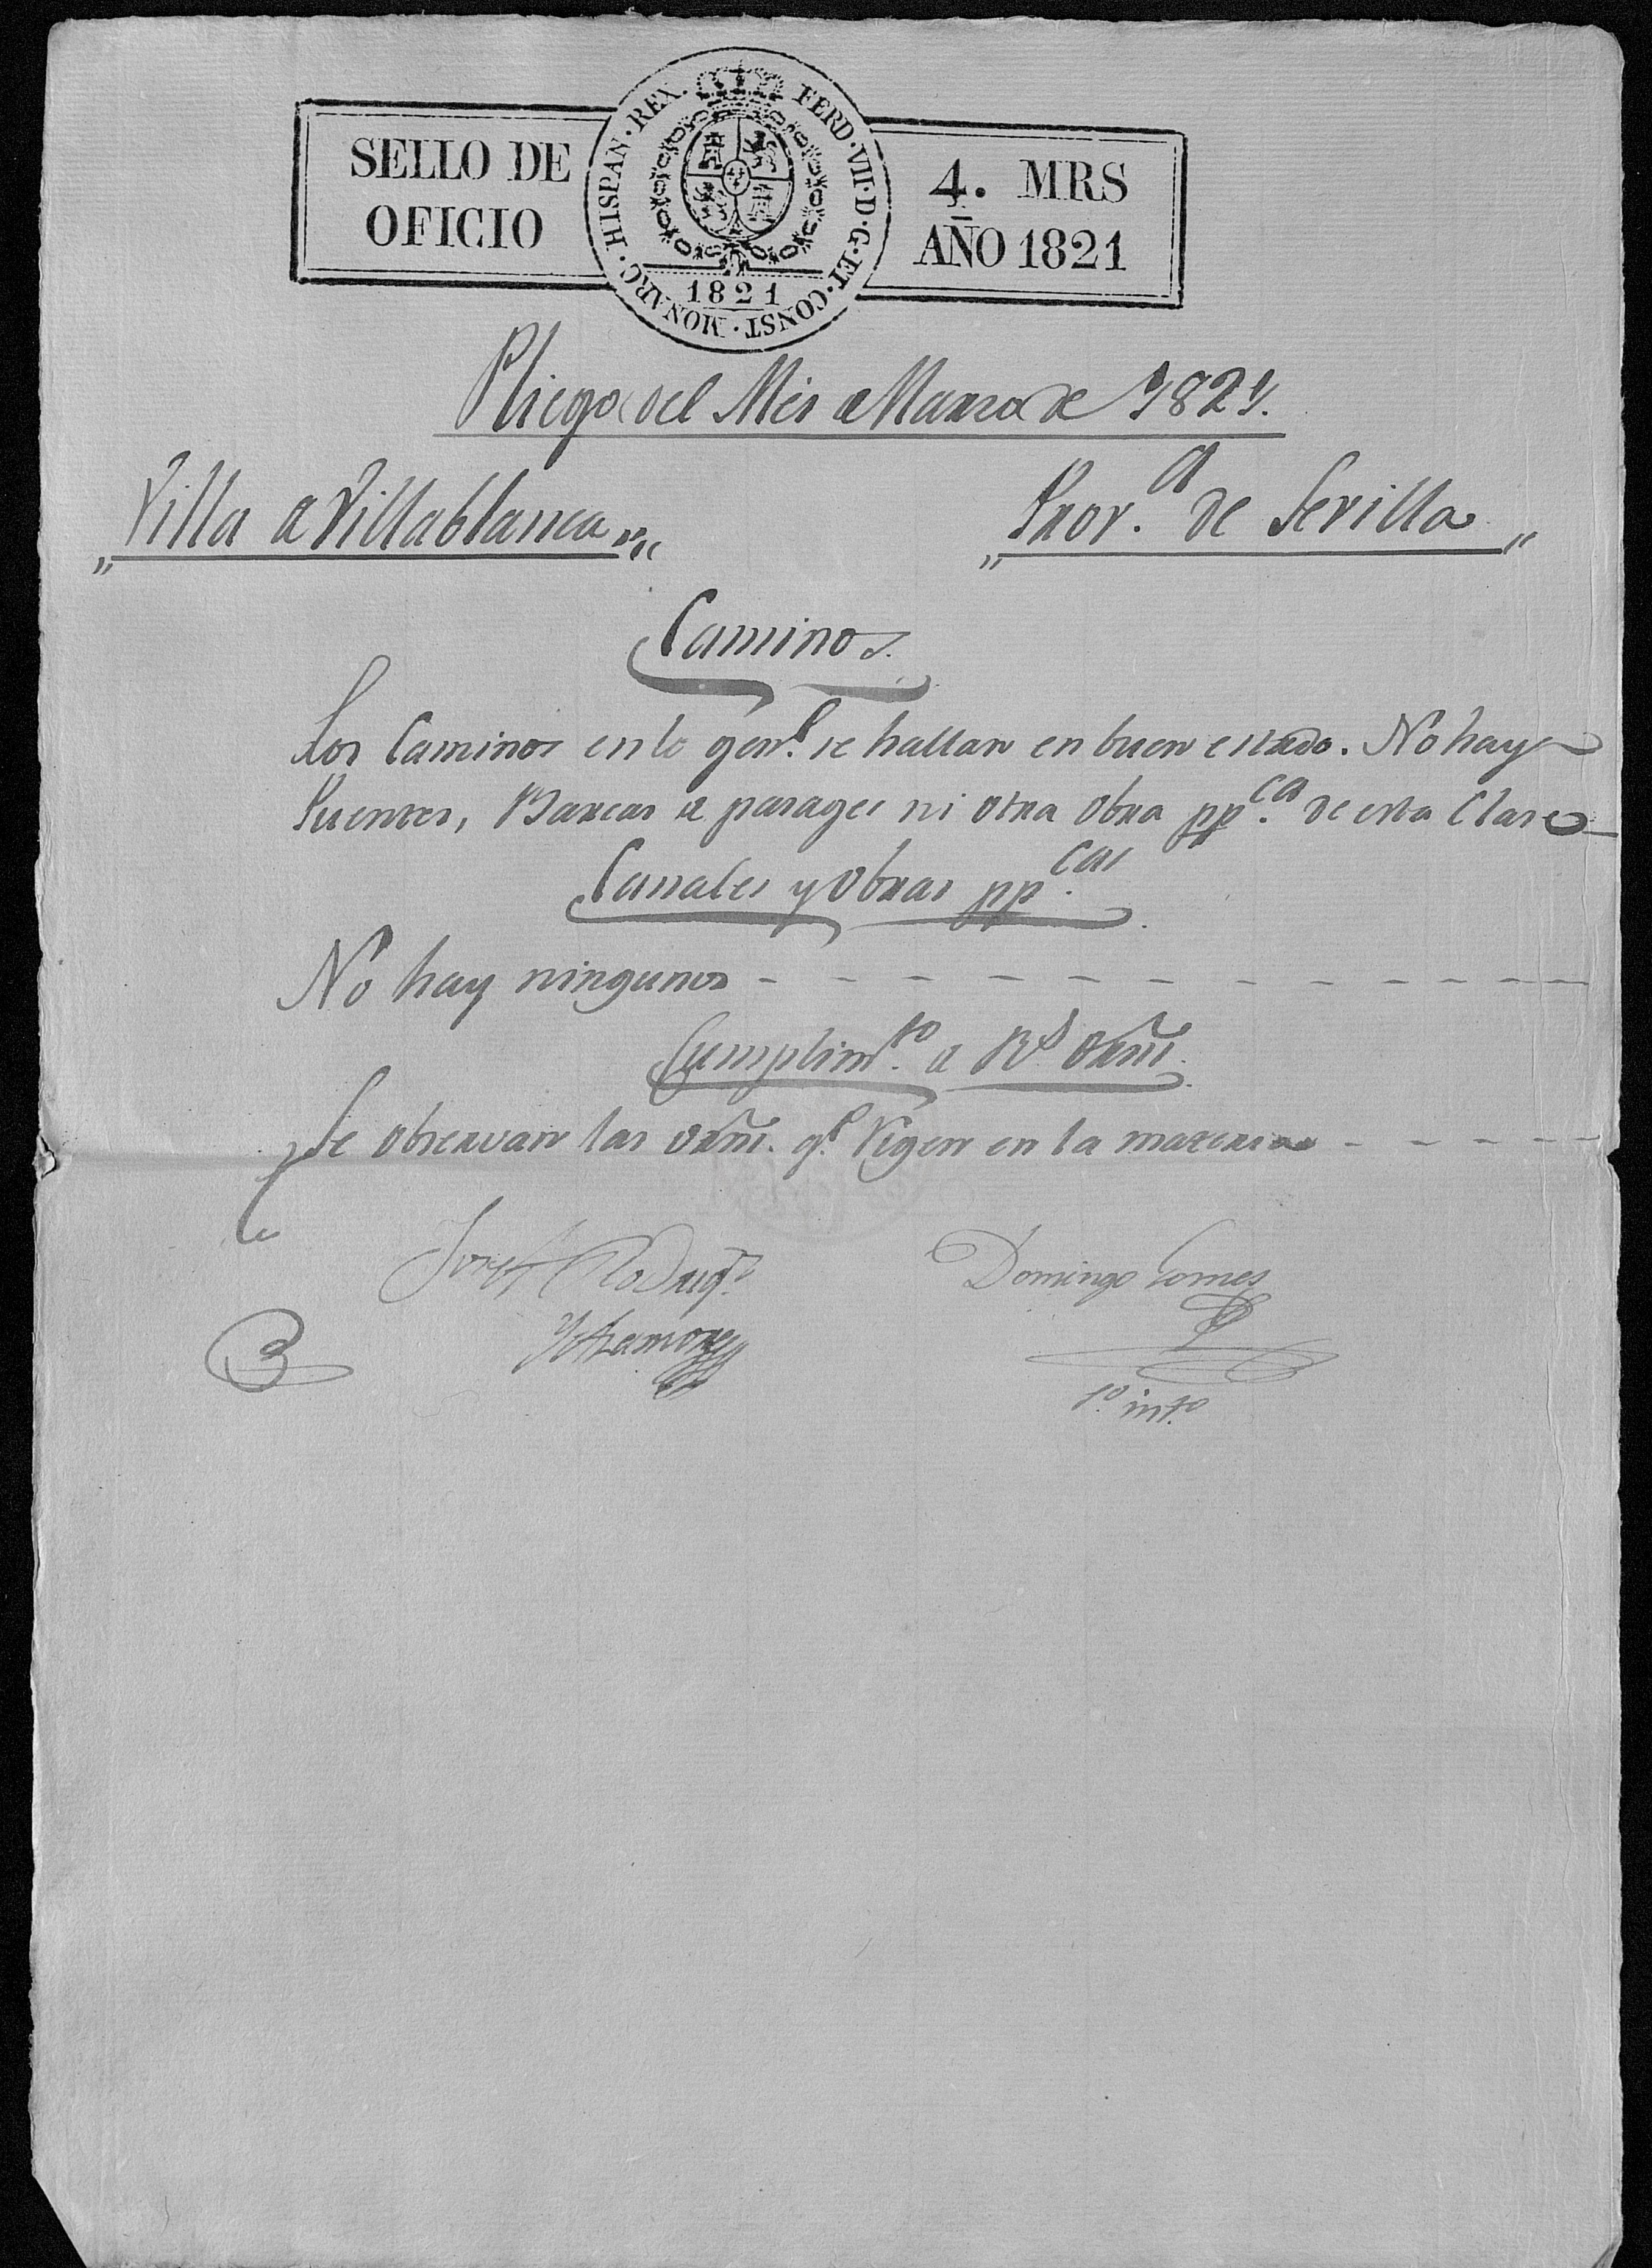 SELLO DE
OFICIO
HISPAN·REX. FERD·VII·D·G·ET·CONST·MONARC·
1821
4. MRS
AÑO 1821
Pliego del Mes de Marzo de 1821.
„Villa de Villablanca„„
„Prov.ª de Sevilla„
Caminos.
Los Caminos en lo gen.l se hallan en buen estado. No hay
Puentes, Barcas de parages ni otra obra pp.ca de esta Clase
Canales y Obras pp.cas
No hay ningunos - - - - - - - - - - -
Cumplim.to de R.s Orñs.
Se observan las orñs. q.e Rigen en la materia - - - - -
Josef Rodrig.z
Domingo Gomes